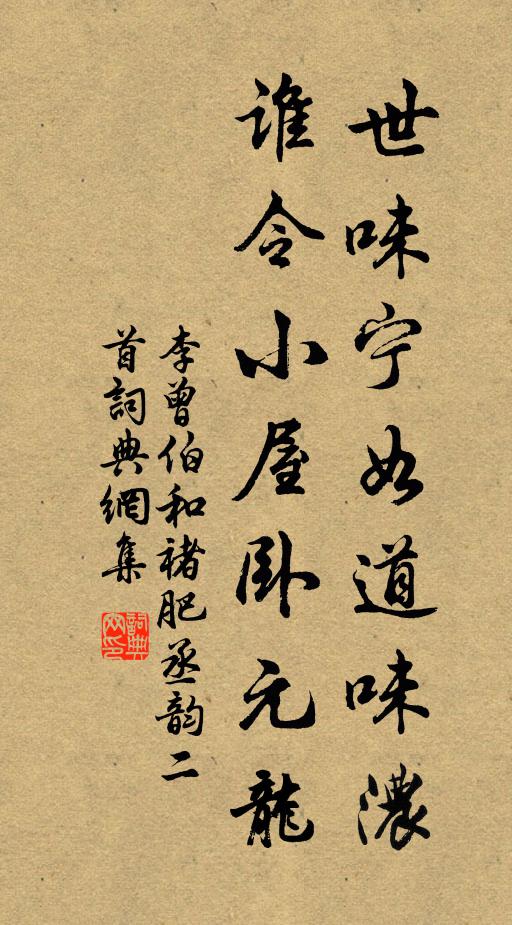 世味宁如道味濃
谁令小屋卧元龍
李曾伯和褚肥丞韵二
首詞典網集
詞典
网印